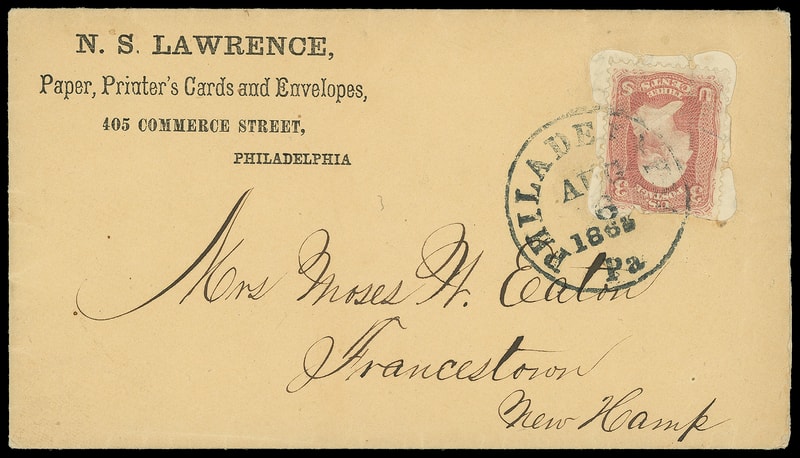 N. S. LAWRENCE,
Paper, Printer's Cards and Envelopes,
405 COMMERCE STREET,
PHILADELPHIA
PHILADE
186
Pa
U 3
THREE CENTS
U.S. POSTAGE
3
Mrs Moses W. Eaton
Francestown
New Hamp